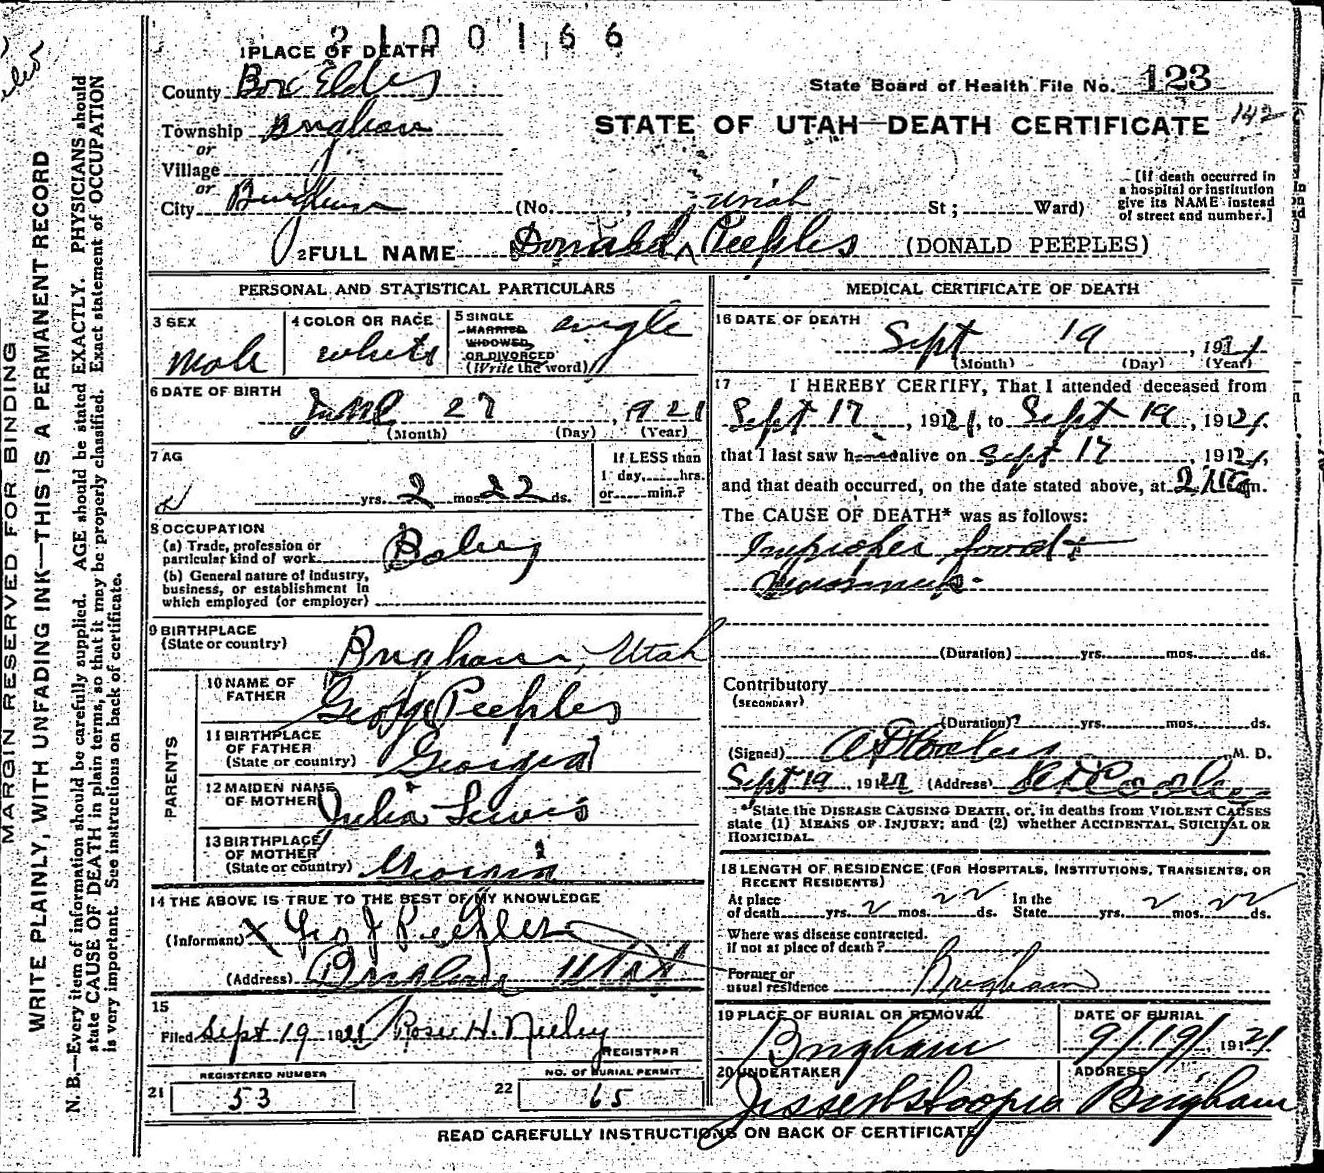 2100166
1 PLACE OF DEATH
County Box Elder
State Board of Health File No. 123
Township Brigham
STATE OF UTAH—DEATH CERTIFICATE 142
or
Village
or
City Brigham (No. , Uriah St; Ward)
[If death occurred in a hospital or institution give its NAME instead of street and number.]
2 FULL NAME Donald Peeples (DONALD PEEPLES)
PERSONAL AND STATISTICAL PARTICULARS
3 SEX
Male
4 COLOR OR RACE
white
5 SINGLE
MARRIED
WIDOWED
OR DIVORCED
(Write the word)
single
6 DATE OF BIRTH
June 27, 1921
(Month) (Day) (Year)
7 AG
yrs. 2 mos. 22 ds.
If LESS than
1 day, hrs.
or min.?
8 OCCUPATION
(a) Trade, profession or
particular kind of work
Baby
(b) General nature of industry,
business, or establishment in
which employed (or employer)
9 BIRTHPLACE
(State or country)
Brigham, Utah
PARENTS
10 NAME OF
FATHER
George Peeples
11 BIRTHPLACE
OF FATHER
(State or country)
Georgia
12 MAIDEN NAME
OF MOTHER
Julia Lewis
13 BIRTHPLACE
OF MOTHER
(State or country)
Georgia
14 THE ABOVE IS TRUE TO THE BEST OF MY KNOWLEDGE
(Informant) X Geo J Peeples
(Address) Brigham Utah
15
Filed Sept 19 1921 Rose H. Neeley
REGISTRAR
REGISTERED NUMBER
21 53
NO. OF BURIAL PERMIT
22 65
MEDICAL CERTIFICATE OF DEATH
16 DATE OF DEATH
Sept 19, 1921
(Month) (Day) (Year)
17 I HEREBY CERTIFY, That I attended deceased from
Sept 17, 1921, to Sept 19, 1921,
that I last saw h alive on Sept 17, 1921,
and that death occurred, on the date stated above, at m.
The CAUSE OF DEATH* was as follows:
Improper food +
(Duration) yrs. mos. ds.
Contributory
(SECONDARY)
(Duration) yrs. mos. ds.
(Signed) A D Cooley M. D.
Sept 19, 1921 (Address) A D Cooley
*State the DISEASE CAUSING DEATH, or, in deaths from VIOLENT CAUSES
state (1) MEANS OF INJURY; and (2) whether ACCIDENTAL, SUICIDAL OR
HOMICIDAL.
18 LENGTH OF RESIDENCE (FOR HOSPITALS, INSTITUTIONS, TRANSIENTS, OR
RECENT RESIDENTS)
At place
of death yrs. 2 mos. 22 ds.
In the
State yrs. 2 mos. 22 ds.
Where was disease contracted.
if not at place of death?
Former or
usual residence Brigham
19 PLACE OF BURIAL OR REMOVAL
Brigham
DATE OF BURIAL
9/19/, 1921
20 UNDERTAKER
ADDRESS
Brigham
READ CAREFULLY INSTRUCTIONS ON BACK OF CERTIFICATE
MARGIN RESERVED FOR BINDING
WRITE PLAINLY, WITH UNFADING INK—THIS IS A PERMANENT RECORD
N. B.—Every item of information should be carefully supplied. AGE should be stated EXACTLY. PHYSICIANS should
state CAUSE OF DEATH in plain terms, so that it may be properly classified. Exact statement of OCCUPATION
is very important. See instructions on back of certificate.